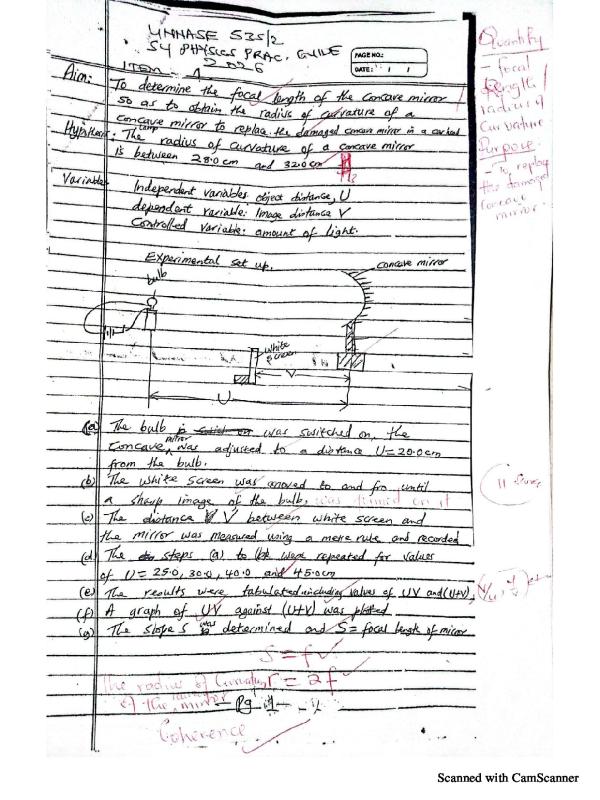 UNNASE 535/2
S4 PHYSICS PRAC. GUIDE
2026
PAGE NO.:
DATE: / /
ITEM - 1
Aim: To determine the focal length of the concave mirror
so as to obtain the radius of curvature of a
concave mirror to replace the damaged concave mirror in a car head
lamp
Hypothesis: The radius of curvature of a concave mirror
is between 28.0cm and 32.0cm
H2
Variables Independent variables object distance, U
dependent variable: Image distance V
Controlled variable: amount of light.
Experimental set up.
bulb
concave mirror
white
screen
V
U
(a) The bulb was switched on, the
concave mirror was adjusted to a distance U = 20.0cm
from the bulb.
(b) The white screen was moved to and fro until
a sharp image of the bulb, was formed on it
(c) The distance V between white screen and
the mirror was measured using a metre rule and recorded
(d) The steps (a) to were repeated for values
of U = 25.0, 30.0, 40.0 and 45.0cm
(e) The results were tabulated including values of UV and (U+V),
(f) A graph of UV against (U+V) was plotted
(g) The slope S was determined and S = focal length of mirror
S = f
the radius of curvature r = 2f
of the mirror
Pg 1
Coherence
Quantify
- focal
length /
radius of
curvature
Purpose
- To replace
the damaged
concave
mirror.
Scanned with CamScanner